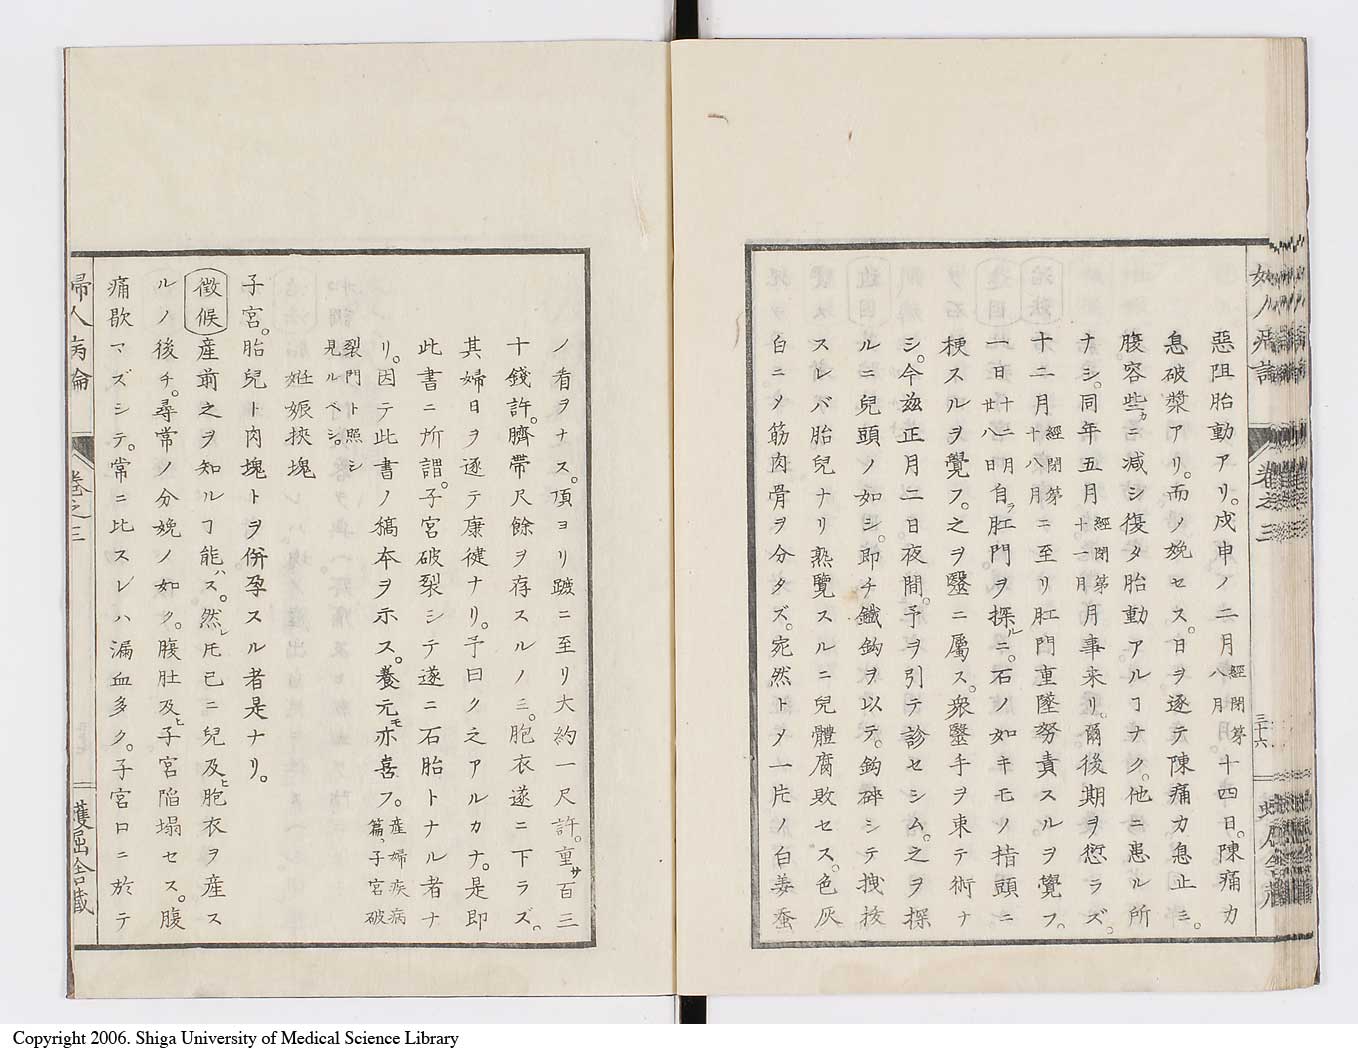 惡阻胎動アリ。戌申ノ二月經閉第八月十四日。陳痛カ
息破漿アリ。而ノ娩セス。日ヲ逐テ陳痛力息止ミ。
腹容些カニ減シ復タ胎動アルヿナク。他ニ患ル所
ナシ。同年五月經閉第十一月月事来リ。爾後期ヲ愆ラズ。
十二月經閉第十八月ニ至リ肛門重墜努責スルヲ覺フ。
一日十二月廿八日自ラ肛門ヲ探ルニ。石ノ如キモノ指頭ニ
梗スルヲ覺フ。之ヲ醫ニ屬ス。衆醫手ヲ束テ術ナ
シ。今玆正月二日夜間。予ヲ引テ診セシム。之ヲ探
ルニ兒頭ノ如シ。即チ鐵鈎ヲ以テ。鈎碎シテ拽拔
スレバ胎兒ナリ熟覽スルニ兒體腐敗セス。色灰
白ニノ筋肉骨ヲ分タズ。宛然トノ一片ノ白姜蚕
三十六
ノ看ヲナス。頂ヨリ蹠ニ至リ大約一尺許。重サ百三
十錢許。臍帶尺餘ヲ存スルノミ。胞衣遂ニ下ラズ。
其婦日ヲ逐テ康徤ナリ。予曰ク之アルカナ。是即
此書ニ所謂。子宮破裂シテ遂ニ石胎トナル者ナ
リ。因テ此書ノ稿本ヲ示ス。養元モ亦喜フ。産婦疾病篇、子宮破
裂門ト照シ見ルベシ。
妊娠挾塊
子宮。胎兒ト肉塊トヲ併孕スル者是ナリ。
徴候 産前之ヲ知ルヿ能ハス。然レ𪜈已ニ兒及ヒ胞衣ヲ産ス
ルノ後チ。尋常ノ分娩ノ如ク。腹肚及ヒ子宮陷塌セス。腹
痛歇マズシテ。常ニ比スレハ漏血多ク。子宮口ニ於テ
婦人病論 卷之三 蠖屈舎藏
Copyright 2006. Shiga University of Medical Science Library